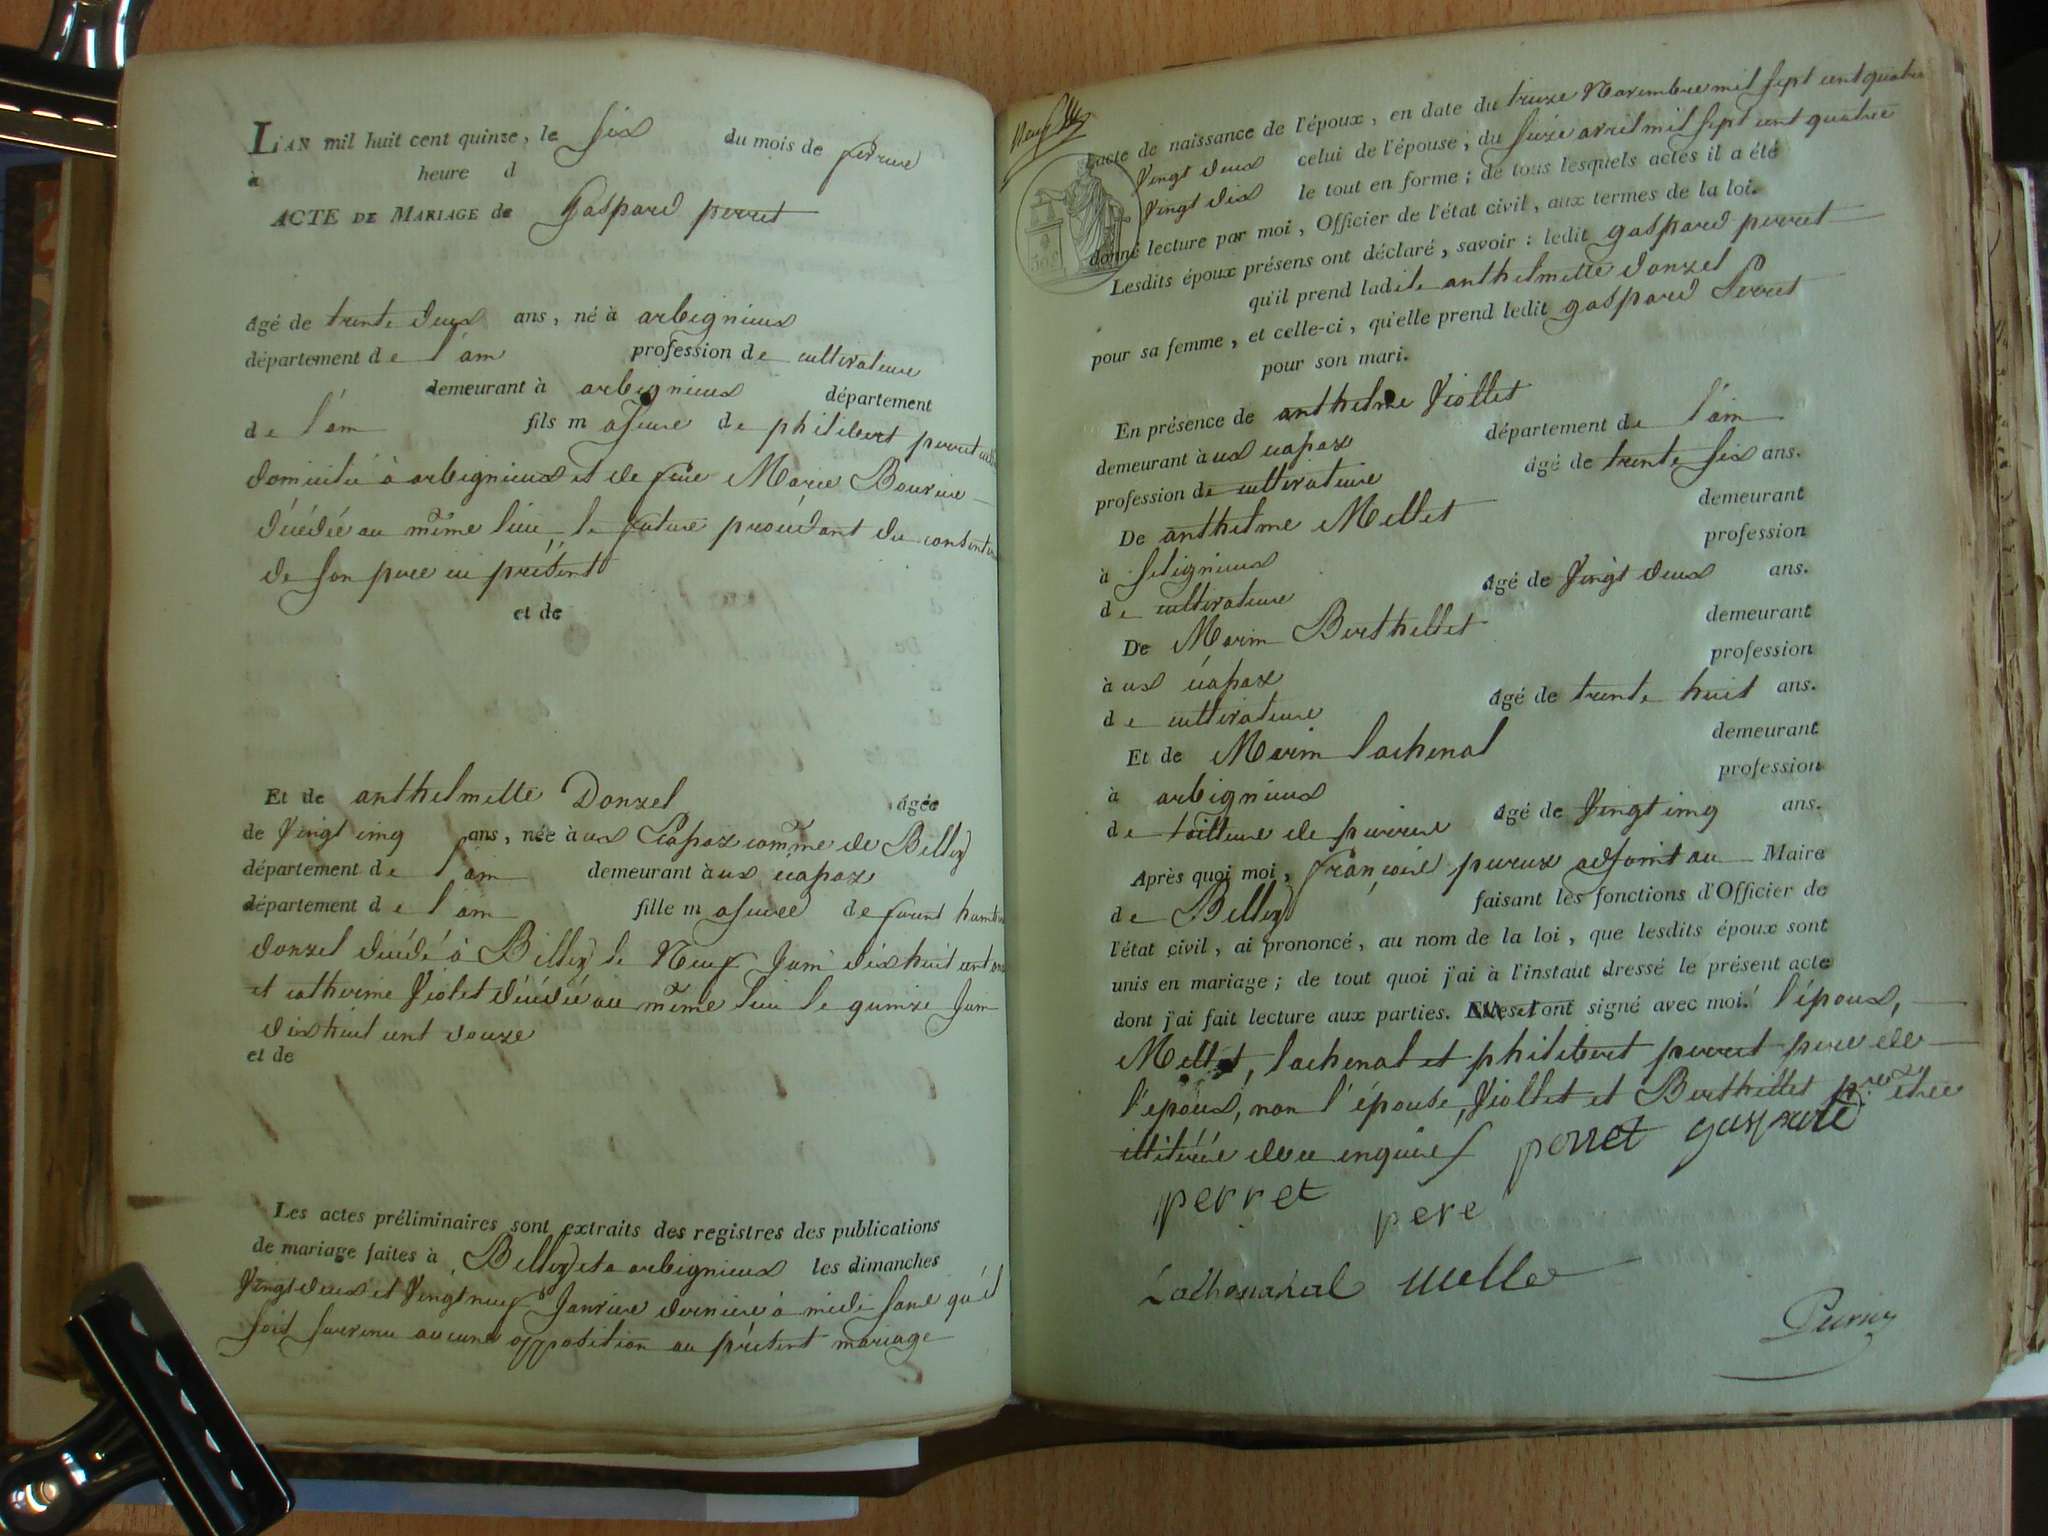 L'AN mil huit cent quinze, le six du mois de fevrier
à heure d
ACTE DE MARIAGE de Gaspard perret
âgé de trente deux ans, né à arbignieux
département de l'ain profession de cultivateur
demeurant à arbignieux département
de l'ain fils majeur de philibert perret
domicilié à arbignieux et de feue Marie Bouvier
décédée au même lieu, le future procédant du
de son pere ici présent
et de
Et de anthelmette Donzel âgée
de vingt cinq ans, née à aux Ecapaz comme de Belley
département de l'ain demeurant à aux écapaz
département de l'ain fille majeure de
donzel décédé à Belley le Neuf Juin dix huit cent
et catherine Violet décédée au même lieu le quinze Juin
dix huit cent douze
et de
Les actes préliminaires sont extraits des registres des publications
de mariage faites à Belley et a arbignieux les dimanches
vingt deux et vingt neuf Janvier dernier à midi sans qu'il
soit survenu aucune opposition au présent mariage
l'acte de naissance de l'époux, en date du treize Novembre mil sept cent quatre
vingt deux celui de l'épouse, du seize avril mil sept cent quatre
vingt dix le tout en forme; de tous lesquels actes il a été
donné lecture par moi, Officier de l'état civil, aux termes de la loi.
Lesdits époux présens ont déclaré, savoir: ledit gaspard perret
qu'il prend ladite anthelmette donzel
pour sa femme, et celle-ci, qu'elle prend ledit gaspard Perret
pour son mari.
En présence de anthelme Viollet
demeurant à aux écapaz département de l'ain
profession de cultivateur âgé de trente six ans.
De anthelme Mellet demeurant
à Seteignieux profession
de cultivateur âgé de vingt deux ans.
De Marin Berthellet demeurant
à aux écapaz profession
de cultivateur âgé de trente huit ans.
Et de Marin lachenal demeurant
à arbignieux profession
de tailleur de pierre âgé de vingt cinq ans.
Après quoi moi, françois adjoint au Maire
de Belley faisant les fonctions d'Officier de
l'état civil, ai prononcé, au nom de la loi, que lesdits époux sont
unis en mariage; de tout quoi j'ai à l'instaut dressé le présent acte
dont j'ai fait lecture aux parties. ont signé avec moi. l'époux,
Mellet, lachenal et philibert perret pere de
l'epoux, non l'épouse, Viollet et Berthellet pour etre
illitérée de ce enquis perret gaspard
perret pere
Lachenal melle